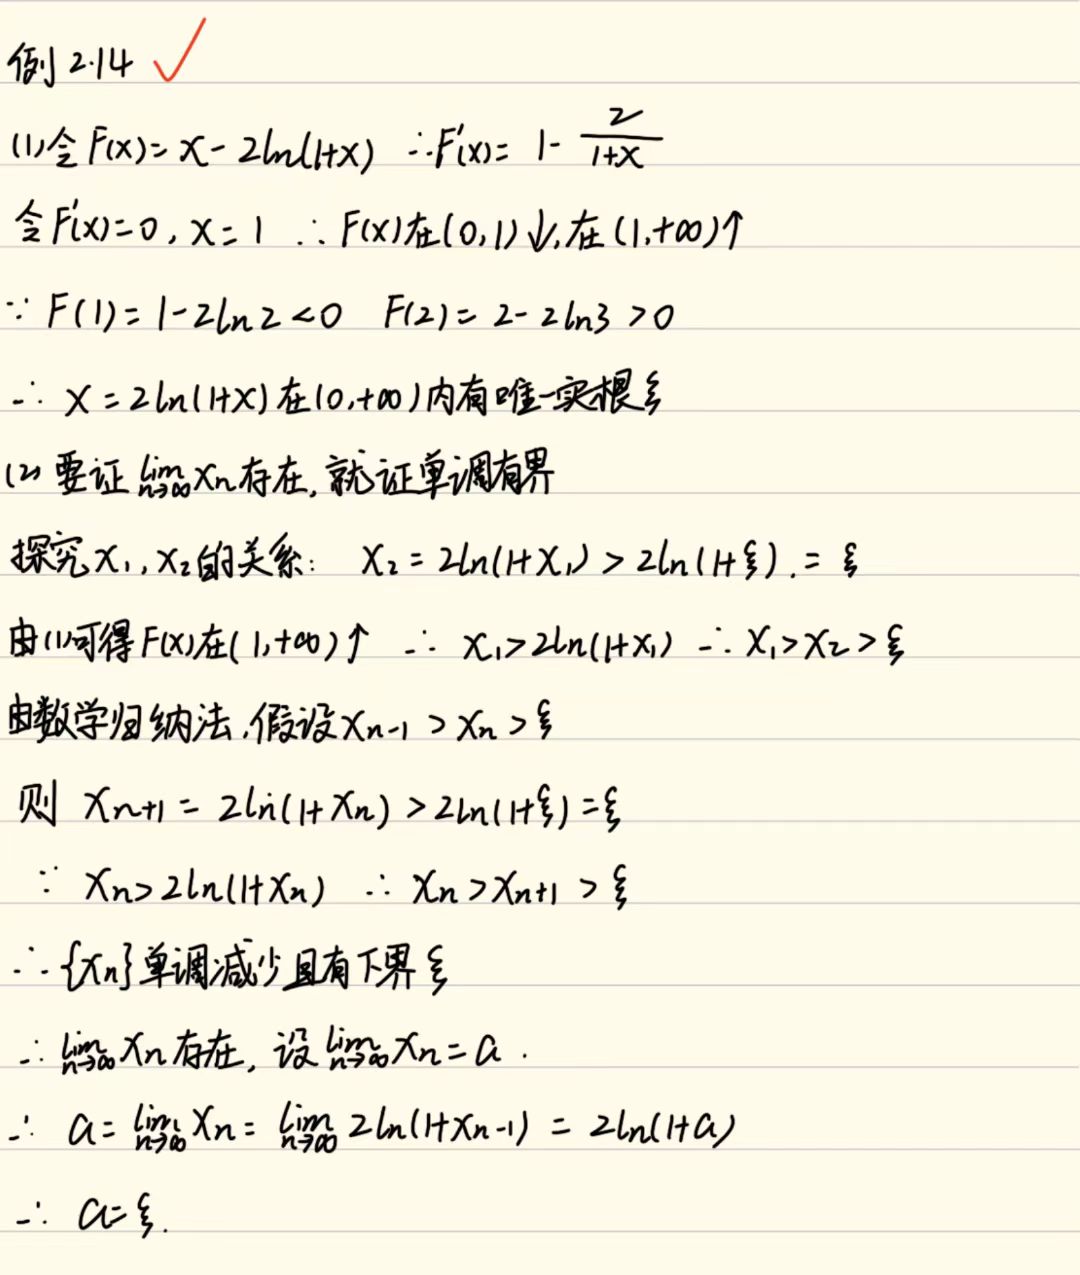 例 2.14 ✓
(1)令 F(x)= x- 2ln(1+x) ∴F'(x)= 1- 2/(1+x)
令F'(x)=0, x=1 ∴ F(x)在(0,1)↓,在(1,+∞)↑
∵ F(1)= 1-2ln2 <0 F(2)= 2- 2ln3 >0
∴ x=2ln(1+x)在(0,+∞)内有唯一实根ξ
(2) 要证 lim n→∞ xn存在, 就证单调有界
探究x1, x2的关系: x2 = 2ln(1+x1) > 2ln(1+ξ). = ξ
由(1)可得F(x)在(1,+∞)↑ ∴ x1>2ln(1+x1) ∴ x1>x2>ξ
由数学归纳法,假设xn-1 > xn >ξ
则 xn+1 = 2ln(1+xn) >2ln(1+ξ) =ξ
∵ xn>2ln(1+xn) ∴ xn >xn+1 >ξ
∴ {xn}单调减少且有下界ξ
∴ lim n→∞ xn存在, 设 lim n→∞ xn=a.
∴ a= lim n→∞ xn= lim n→∞ 2ln(1+xn-1) = 2ln(1+a)
∴ a=ξ.